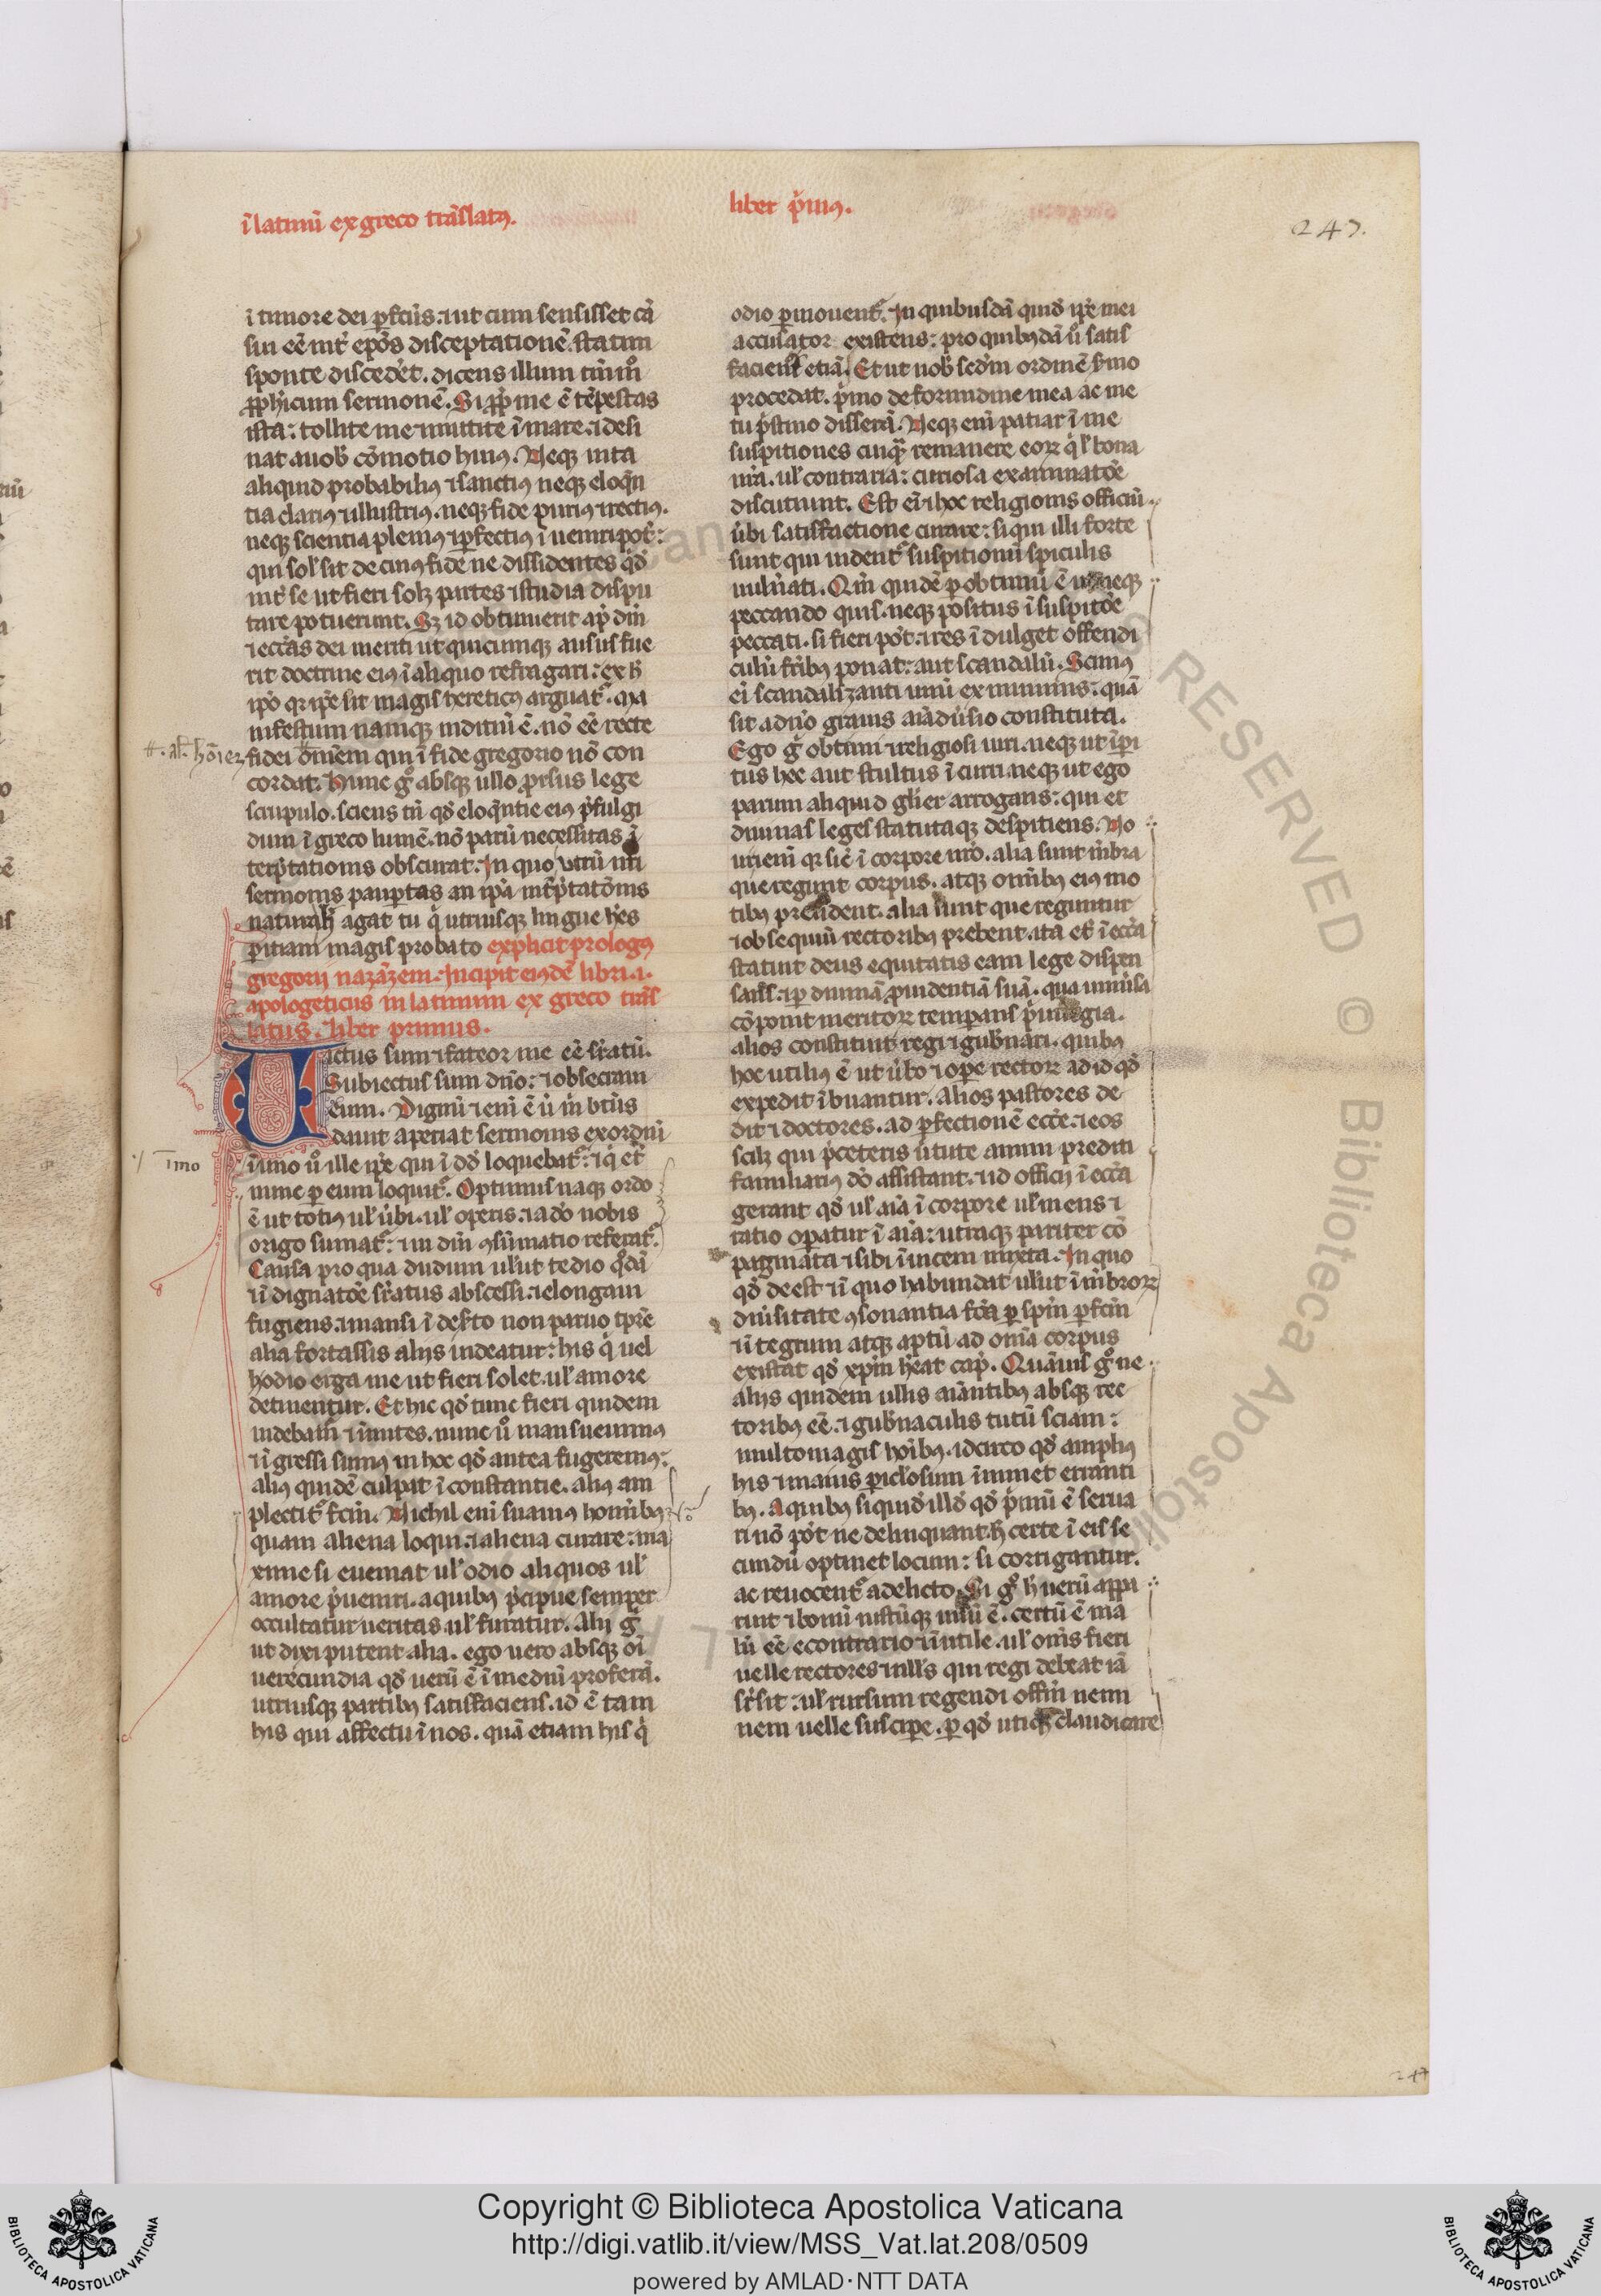 ī latinū ex greco trāslatꝰ.
liber p̓mꝰ.
247.
ī timore dei ꝑfect̓us: ut cum sensisset cā
sui eē int̓ ep̄os disceptationē. statim
sponte discedēt. dicens illum
ꝓph̓icum sermonē. Si ꝓp̓ me ē tēpestas
ista: tollite me ⁊ mittite ī mare. ⁊ desi
nat a uob̓ cōmotio huiꝰ. Neqꝫ in ta
aliquid probabiliꝰ ⁊ sanctiꝰ neqꝫ eloq̄n
tia clariꝰ ⁊ illustriꝰ. neqꝫ fide puriꝰ ⁊ rectiꝰ.
neqꝫ scientia pleniꝰ ⁊ ꝑfectiꝰ ī ueniri pot̓:
qui sol̓ sit de cuiꝰ fide ne dissidentes qd̓
int̓ se ut fieri solꝫ partes ⁊ studia dispu
tare potuerint. Sꝫ id obtinuerit ap̓ dm̄
⁊ ecc̄as dei meriti ut quicumqꝫ ausus fue
rit doctrine eiꝰ ī aliquo refragari: ex h̓
ip̄o qr ip̄e sit magis hereticꝰ arguat᷑. Ma
nifestum namqꝫ indiciū ē. nō eē recte
#. al̓. hōiez
fidei omnem qui ī fide gregorio nō con
cordat. Hunc g̊ absqꝫ ullo prorsus lege
scrupulo. sciens tn̄ qd̓ eloquntie eiꝰ p̓fulgi
dum ī greco lumē. nō parū necessitas ī
terp̓tationis obscurat. In quo utrū nr̄i
sermonis pauꝑtas an ip̄a int̓p̓tatōnis
natura h̓ agat tu q̓ utriusqꝫ lingue h̓es
ꝑitiam magis probato explicit prologꝰ
gregorij nazāzeni. Incipit eiusdē libri .i.
apologeticus in latinum ex greco trās
latus. liber primus.
Uictus sum ⁊ fateor me eē sṙatū.
Subiectus sum dn̄o: ⁊ obsecram
eum. Dignū ⁊ enī ē ut m̓ btūs
dauit aperiat sermonis exordiū
·/ īmo
īimo u̓o ille ip̄e qui ī dd̓ loquebat᷑: ⁊ q̓ et̓
nunc ꝑ eum loquit᷑. Optimus naqꝫ ordo
ē ut totiꝰ ul̓ ūbi. ul̓ operis. ⁊ a do nobis
origo sumat᷑: ⁊ in dm̄ ꝯsūmatio referat᷑.
Causa pro qua dudum uelut tedio qd̓ā
⁊ īdignatōe sṙatus abscessi. ⁊ elongaui
fugiens. ⁊ mansi ī des̓to non paruo tp̄re
alia fortassis aliis uideatur: his q̓ uel
hodio erga me ut fieri solet. ul̓ amore
detinentur. Et hic qd̓ tunc fieri quidem
uidebam ⁊ īmites. nunc u̓o mansueuimꝰ
⁊ īgressi sumꝰ in hoc qd̓ antea fugeremꝰ:
aliꝰ quidē culpat ī constantie. aliꝰ am
plectit᷑ fcm̄. Nichil enī suauiꝰ hominibꝰ
quam aliena loqui. ⁊ aliena curare: ma
xime si eueniat ul̓ odio aliquos ul̓
amore p̓ueniri. a quibꝰ p̓cipue semper
occultatur ueritas ul̓ furatur. Alij g̓
ut dixi putent alia. ego uero absqꝫ oī
uerecundia qd̓ uerū ē ī mediū proferā.
utriusqꝫ partibꝰ satisfaciens. id ē tam
his qui affectu ī nos. quā etiam his q̓
odio ꝑmouent᷑. In quibusdā quid̓ ip̄e mei
accusator existens: pro quibꝰdā u̓o satis
faciens etiā. Et ut uob̓ sedm̄ ordinē s̓mo
procedat. p̓mo de formidine mea ac me
tu p̓stino disserā. Neqꝫ enī patiar ī me
suspitiones cuiqꝫ remanere eoꝝ q̓ ul̓ bona
nr̄a. ul̓ contraria: curiosa examinatōe
discutiunt. Est eī ⁊ hoc religionis officiū
ūbi satisfactione curare: si qui illi forte
sunt qui uident᷑ suspitionū spiculis
uuln̓ati. Qm̄ quidē ꝑobtimū ē ut neqꝫ
peccando quis. neqꝫ positus ī suspitōe
peccati. si fieri pōt. ⁊ res ī dulget offendi
culū fr̄ibꝰ ponat: aut scandalū. Scimꝰ
eī scandalizanti unū ex minimis: quā
sit a dn̄o grauis aīaduersio constituta.
Ego g̓ obtimi ⁊ religiosi uiri. neqꝫ ut īꝑi
tus hec aut stultus ī curri neqꝫ ut ego
parum aliquid gl̓ier arrogans: qui et
diuinas leges statutaqꝫ despitiens. No
ui enī qr sic̓ ī corpore nr̄o. alia sunt m̄bra
que regunt corpus. atqꝫ omībꝰ eiꝰ mo
tibꝰ president. alia sunt que reguntur
⁊ obsequiū rectoribꝰ prebent. ita et̓ ī ecc̄a
statuit deus equitatis eam lege dispen
sans. ⁊ ꝑ diuinā ꝓuidentiā suā. qua uniu̓sa
cōponit meritoꝝ temperans p̓uilegia.
alios constituit regi ⁊ gub̓nari. quibꝰ
hoc utiliꝰ ē ut ūbo ⁊ ope rectoꝝ ad id qd̓
expedit ībuantur. Alios pastores de
dit ⁊ doctores. ad ꝑfectionē ecc̄e. ⁊ eos
scilꝫ qui p̓ceteris ūtute animi prediti
familiariꝰ dō assistant. ⁊ id officij ī ecc̄a
gerant qd̓ ul̓ aīa ī corpore ul̓ mens ⁊
ratio operatur ī aīa: utraqꝫ pariter cō
paginata ⁊ sibi īuicem mixta. In quo
qd̓ deest ⁊ ī quo habundat uelut ī m̄broꝝ
diu̓sitate ꝯsonantia fc̄a ꝑ spm̄ ꝑfcm̄
⁊ ītegrum atqꝫ aptū ad om̄ia corpus
existat qd̓ xp̄m h̓eat cap̓. Quāuis g̊ ne
aliis quidem ullis aīantibꝰ absqꝫ rec
toribꝰ eē. ⁊ gub̓naculis tutū sciam:
multomagis hoībꝰ. idcirco qd̓ ampliꝰ
his ⁊ maius ꝑiclosum īminet erranti
bꝰ. A quibꝰ siquid̓ illd̓ qd̓ p̓mū ē serua
ri nō pōt ne delinquant. h̓ certe ī eis se
cundū optinet locum: si corrigantur.
ac reuocent᷑ a delicto. Si g̊ h̓ uerū appa
ruit ⁊ bonū iustūqꝫ uisū ē. certū ē ma
lū eē econtrario ⁊ īutile. ul̓ om̄s fieri
uelle rectores ⁊ nll̓s qui regi debeat iā
sṙ sit: ul̓ rursum regendi offm̄ nemi
nem uelle suscipe. ꝑ qd̓ utiqꝫ claudicare
247
RESERVED © Biblioteca Apostolica
Copyright © Biblioteca Apostolica Vaticana
http://digi.vatlib.it/view/MSS_Vat.lat.208/0509
powered by AMLAD·NTT DATA
BIBLIOTECA APOSTOLICA VATICANA
BIBLIOTECA APOSTOLICA VATICANA